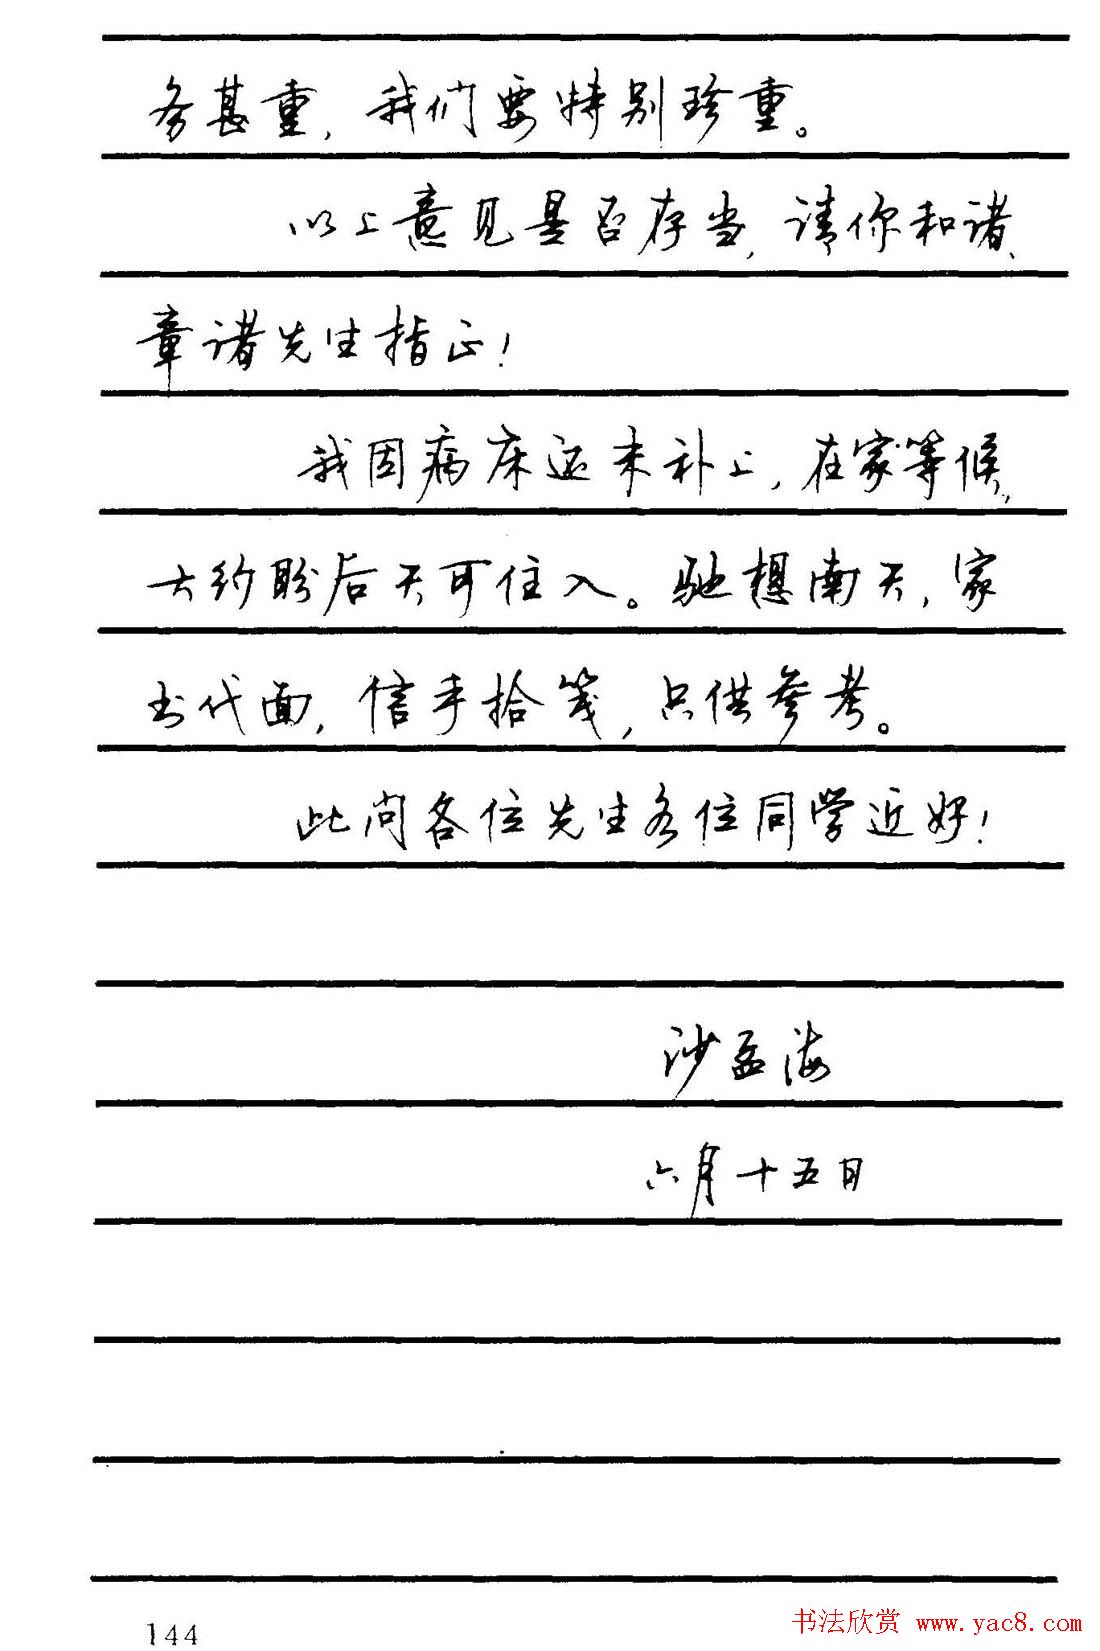 务甚重，我们要特别珍重。
以上意见是否存当，请你和诸、
章诸先生指正！
我因病床还未补上，在家等候，
大约盼后天可住入。驰想南天，家
书代面，信手拾笺，只供参考。
此问各位先生各位同学近好！
沙孟海
六月十五日
144
书法欣赏 www.yac8.com